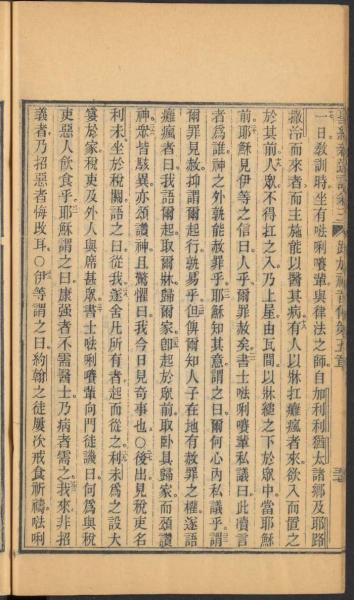 一日敎訓時坐有呿唎㘔輩與律法之師自加利利猶太諸鄉及耶路
撒冷而來者而主施能以醫其病有人以牀扛癱瘋者來欲入而置之
於其前人衆不得扛之入乃上屋由瓦間以牀縋之下於衆中當耶穌
前耶穌見伊等之信曰人乎爾罪赦矣書士呿唎㘔輩私議曰此瀆言
者爲誰神之外孰能赦罪乎耶穌知其意謂之曰爾何心內私議乎謂
爾罪見赦抑謂爾起行孰易乎但俾爾知人子在地有赦罪之權遂語
癱瘋者曰我語爾起取爾牀歸爾家卽起於衆前取臥具歸家而頌讚
神衆皆駭異亦頌讚神且驚懼曰我今日見奇事也○後出見稅吏名
利未坐於稅關語之曰從我遂舍凡所有者起而從之利未爲之設大
筵於家稅吏及外人與席甚衆書士呿唎㘔輩向門徒譏曰何爲與稅
吏惡人飲食乎耶穌謂之曰康强者不需醫士乃病者需之我來非招
義者乃招惡者悔改耳○伊等謂之曰約翰之徒屢次戒食祈禱呿唎